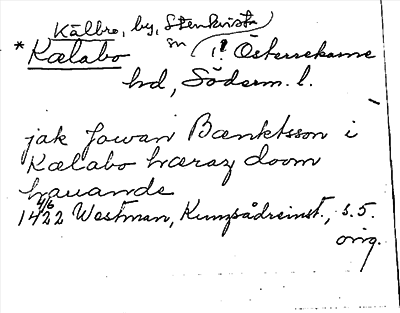 Kälbro, by, Stenkvista
sn
* Kælabo i ? Österrekarne
hd, Söderm. l.
jak Jowan Bænktsson i
Kælabo hæraz doom
hauande
4/6
1422 Westman, Kungsådreinst., s. 5.
orig.